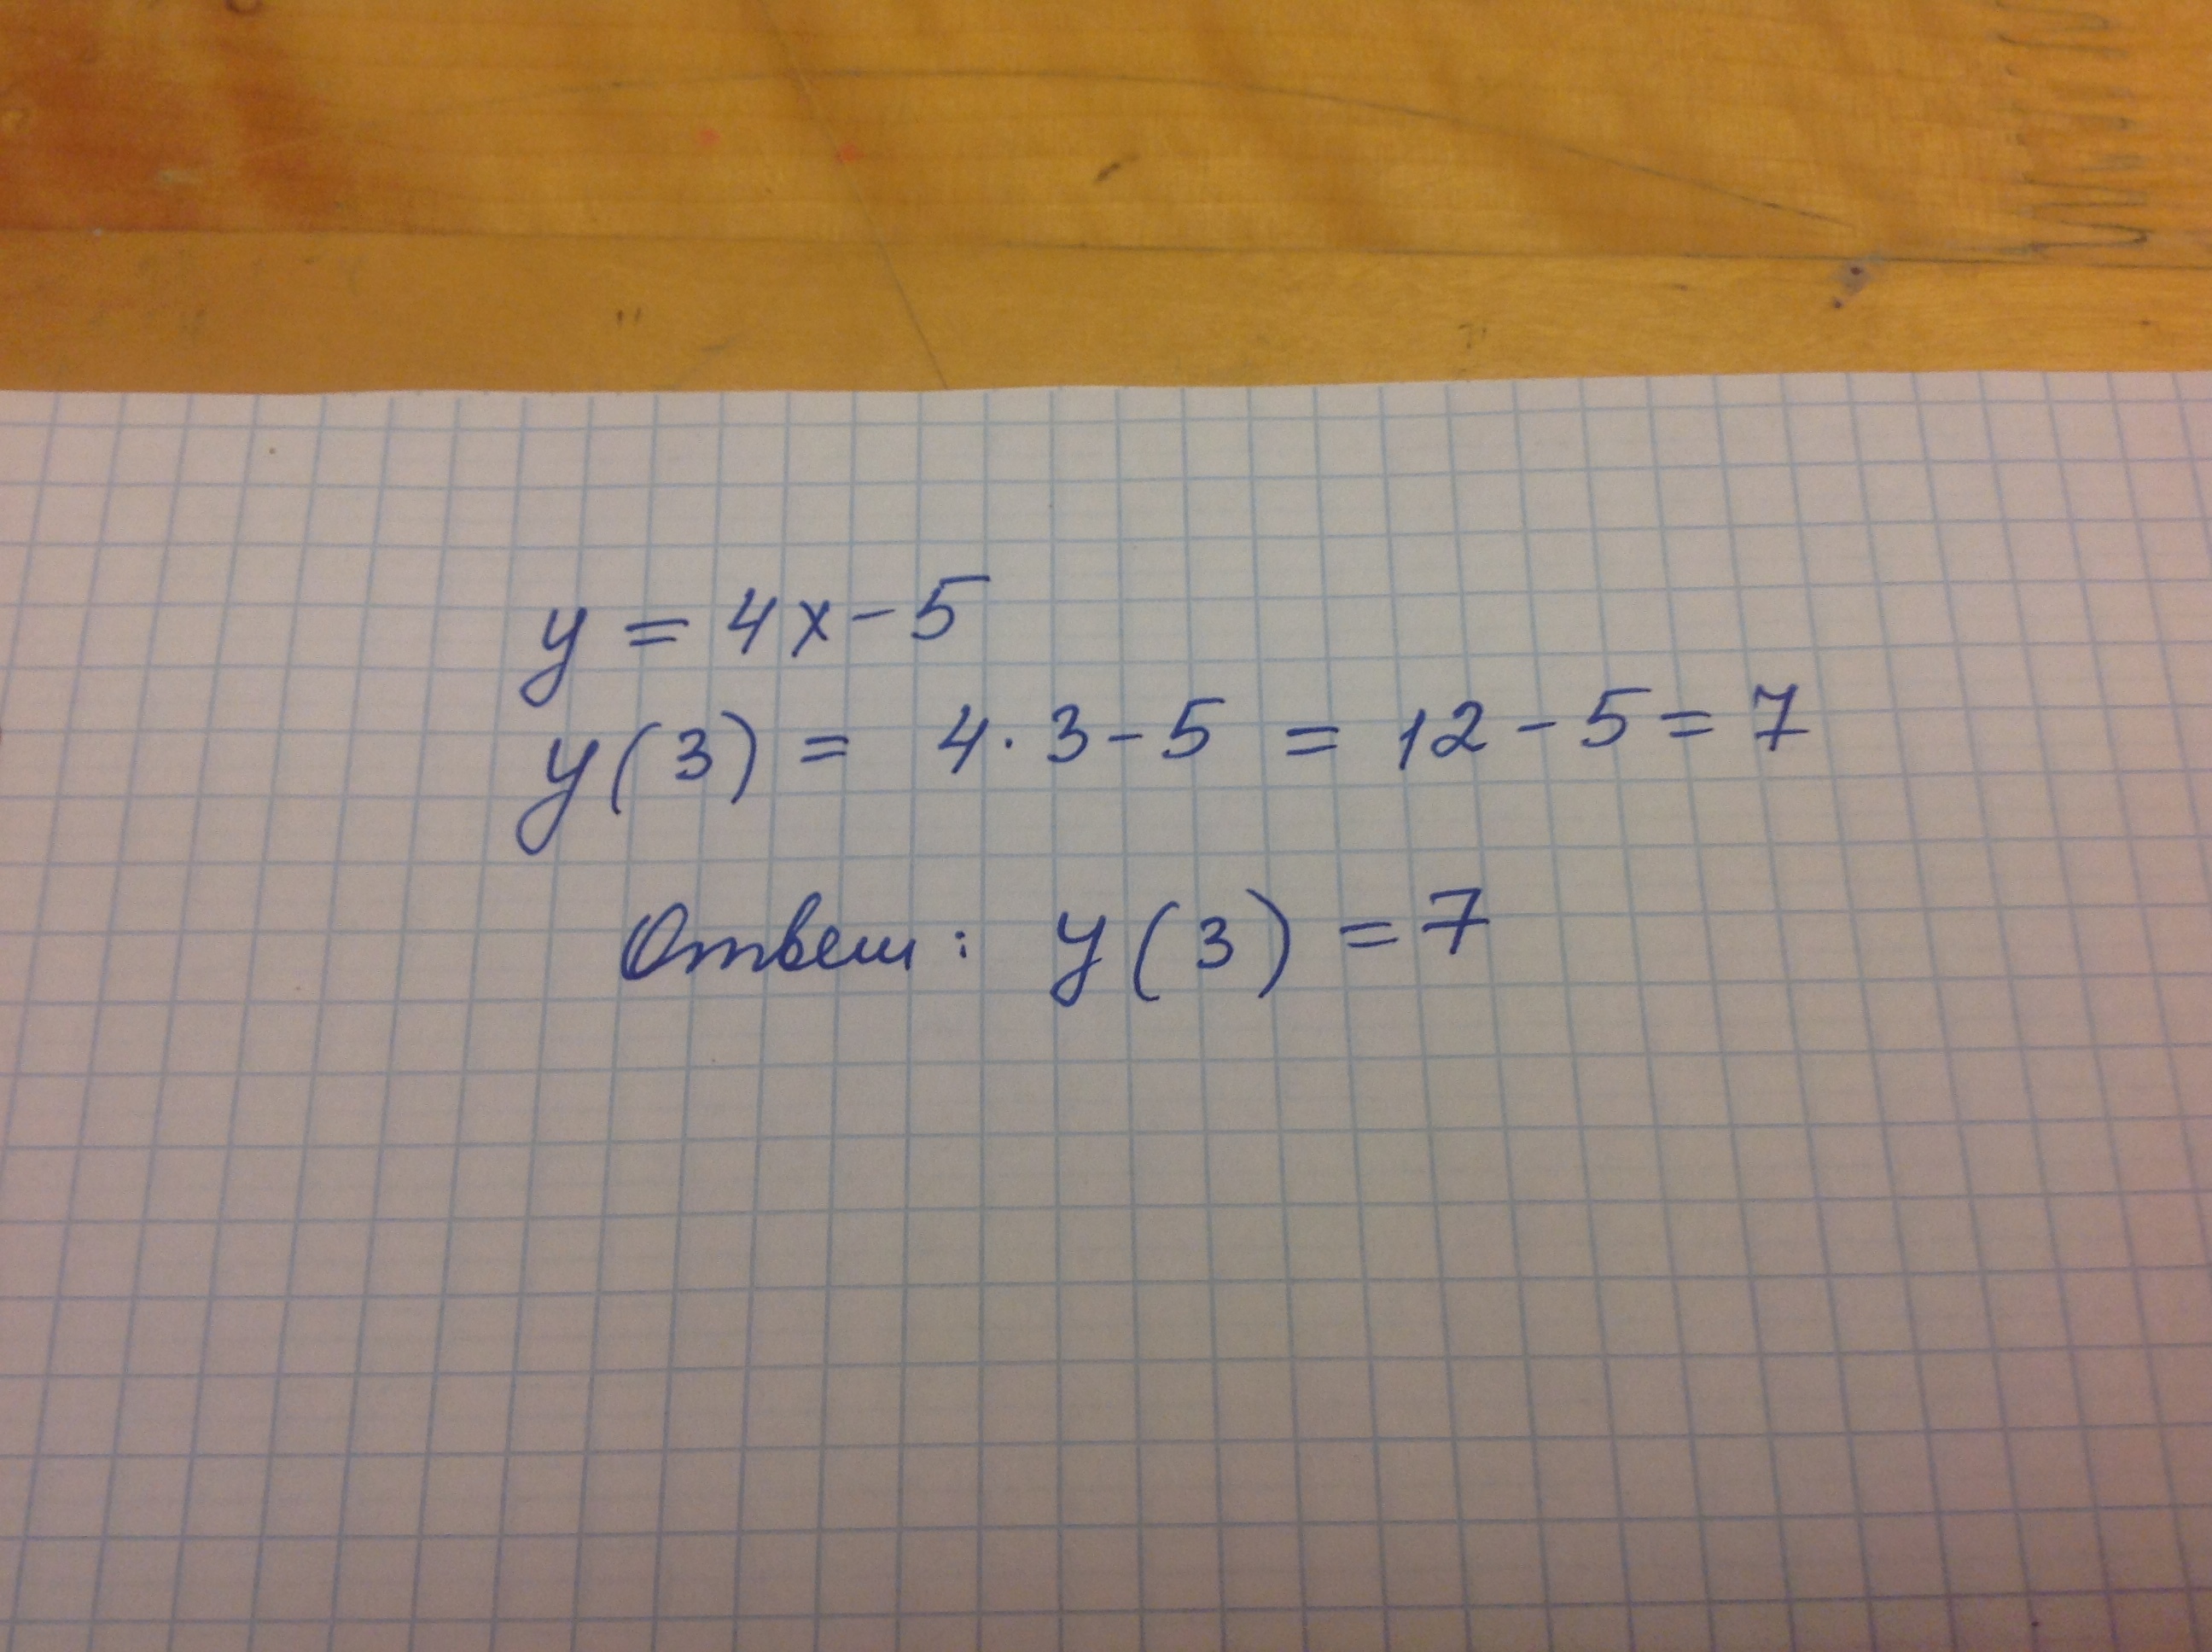 y = 4x - 5
y(3) = 4 · 3 - 5 = 12 - 5 = 7
Ответ: y(3) = 7